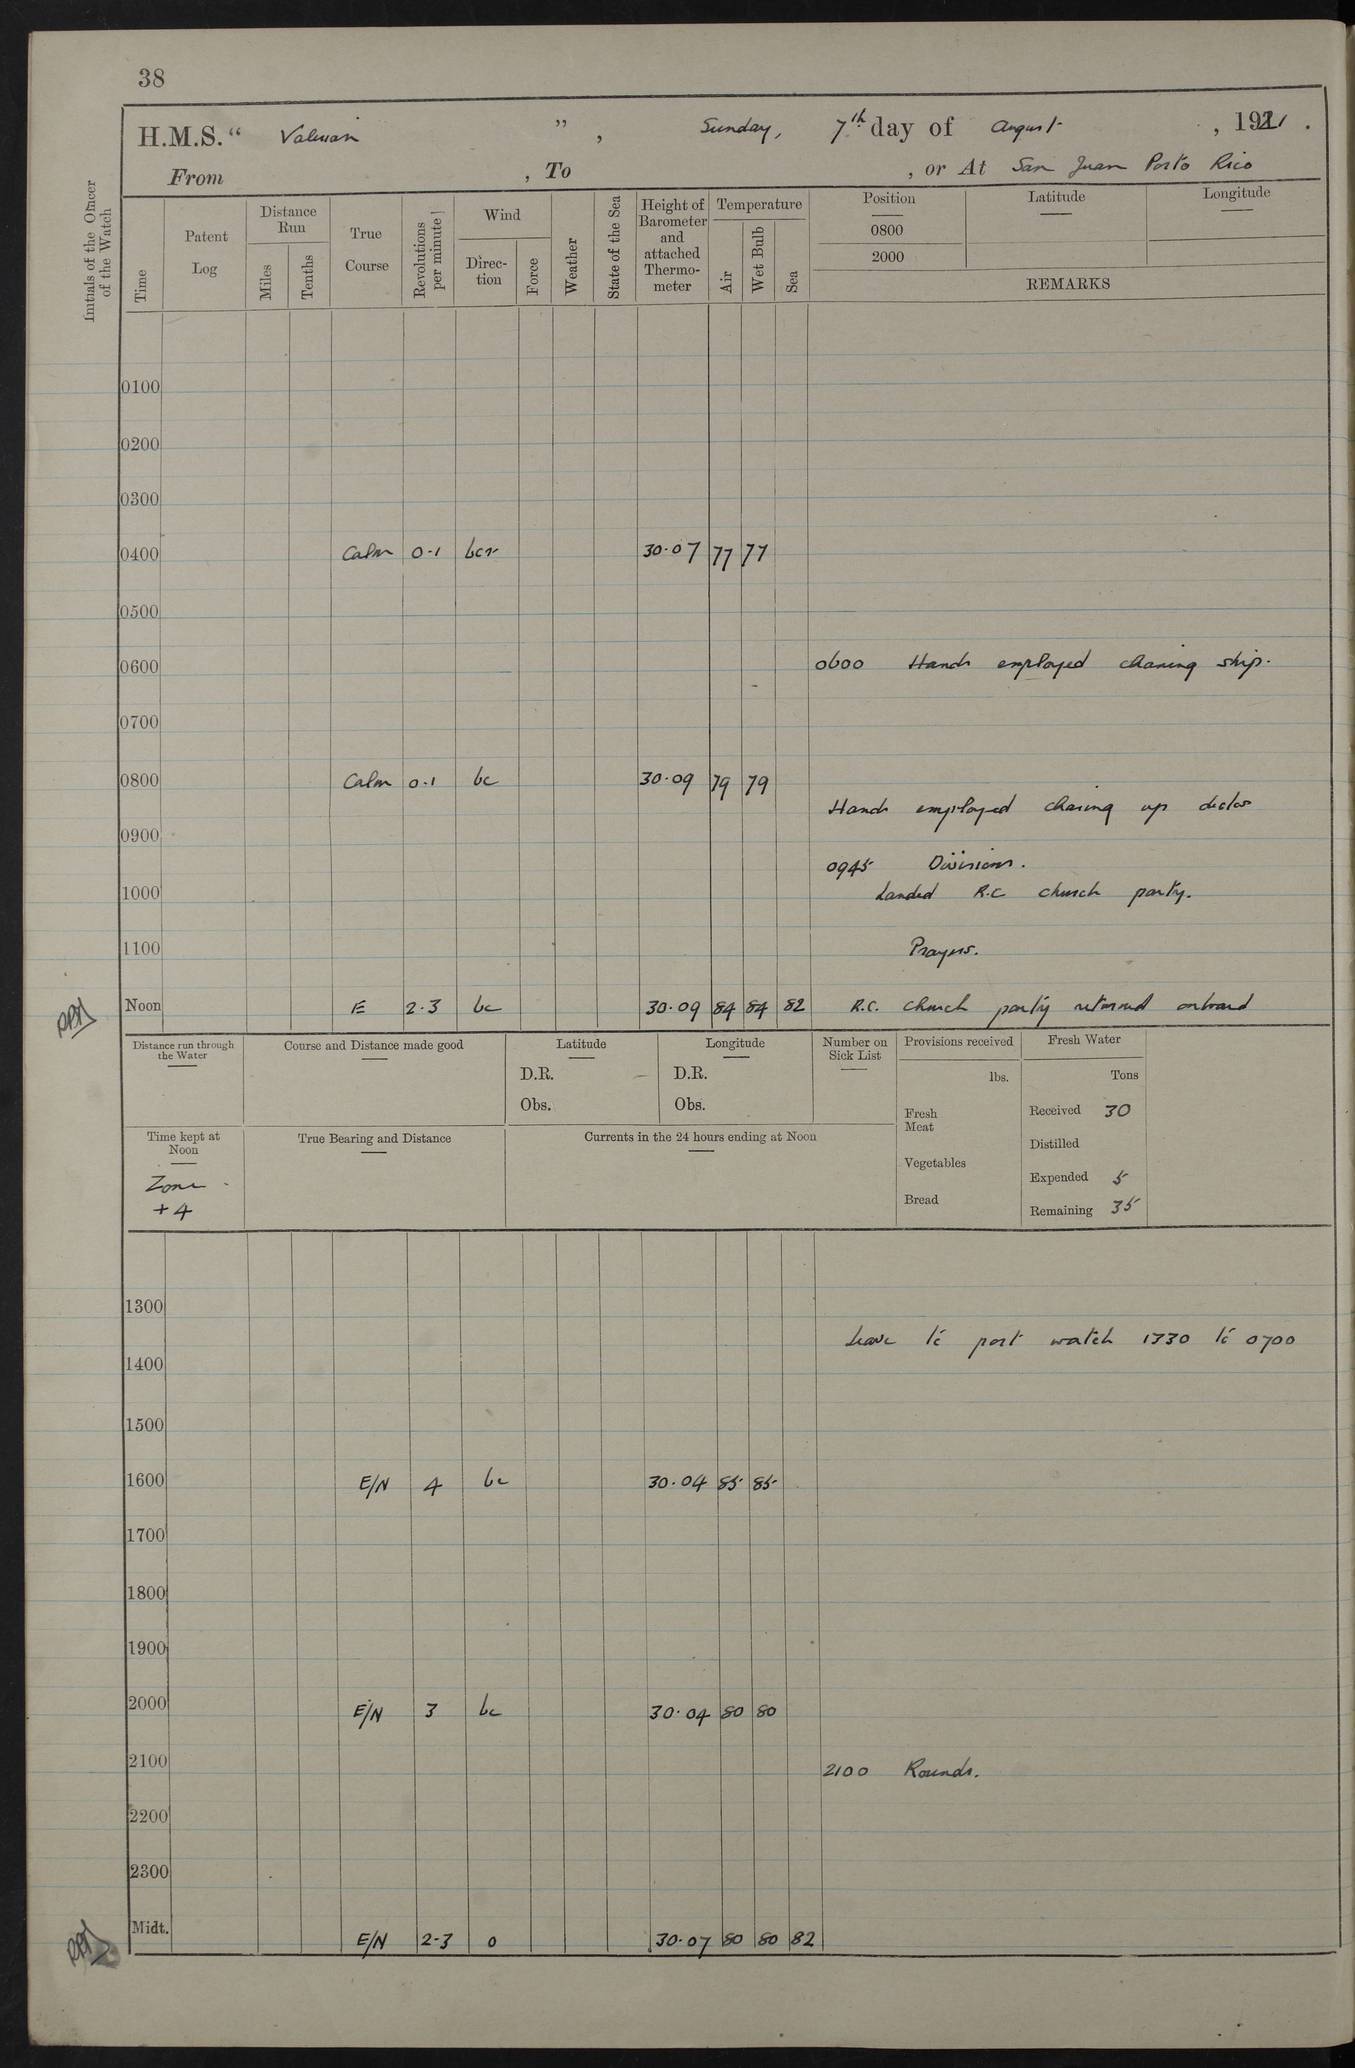 38
H.M.S. “ Valerian ” , Sunday, 7th day of August , 1921 .
From , To , or At San Juan Porto Rico
Initials of the Officer of the Watch
Time
Patent Log
Distance Run
Miles
Tenths
True Course
Revolutions per minute
Wind
Direc-tion
Force
Weather
State of the Sea
Height of Barometer and attached Thermo-meter
Temperature
Air
Wet Bulb
Sea
Position
0800
2000
Latitude
Longitude
REMARKS
0100
0200
0300
0400 Calm 0-1 bcr 30.07 77 77
0500
0600 0600 Hands employed cleaning ship.
0700
0800 Calm 0-1 bc 30.09 79 79
Hands employed clearing up decks
0900
0945 Divisions.
1000 Landed R.C church party.
1100 Prayers.
Noon E 2-3 bc 30.09 84 84 82 R.C. church party returned onboard
Distance run through the Water
Course and Distance made good
Latitude
D.R.
Obs.
Longitude
D.R.
Obs.
Number on Sick List
Provisions received
lbs.
Fresh Meat
Vegetables
Bread
Fresh Water
Tons
Received 30
Distilled
Expended 5
Remaining 35
Time kept at Noon
Zone
+4
True Bearing and Distance
Currents in the 24 hours ending at Noon
1300
Leave to port watch 1330 to 0700
1400
1500
1600 E/N 4 bc 30.04 85 85
1700
1800
1900
2000 E/N 3 bc 30.04 80 80
2100 2100 Rounds.
2200
2300
Midt. E/N 2-3 o 30.07 80 80 82